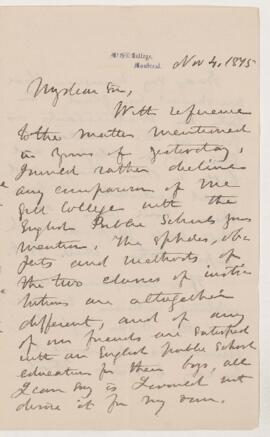 McGill College,
Montreal.
Nov 4, 1895
My dear Sir,
With reference
to the matter mentioned
in yours of yesterday,
I would rather decline
any comparison of Mc
Gill College with the
English Public Schools you
mention. The spheres, obj
ects and methods of
the two classes of insti
tutions are altogether
different, and if any
of our friends are satisfied
with an English public School
education for their boys, all
I can say is I would not
desire it for my own.